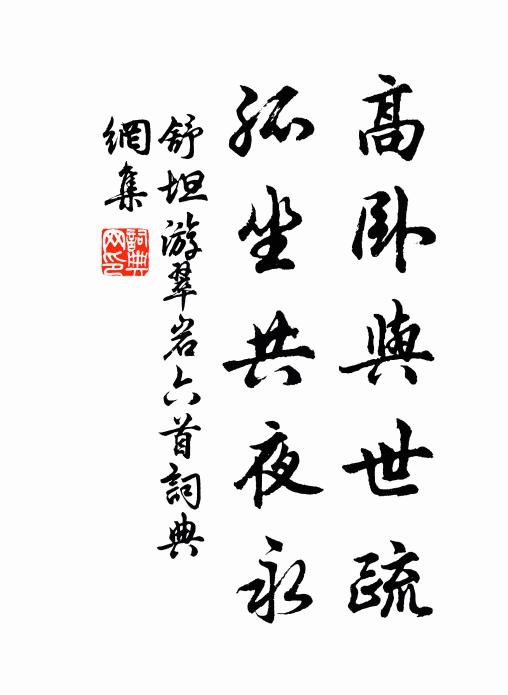 高卧與世疏
孤坐共夜永
舒坦游翠岩六首詞典
網集
詞典網印